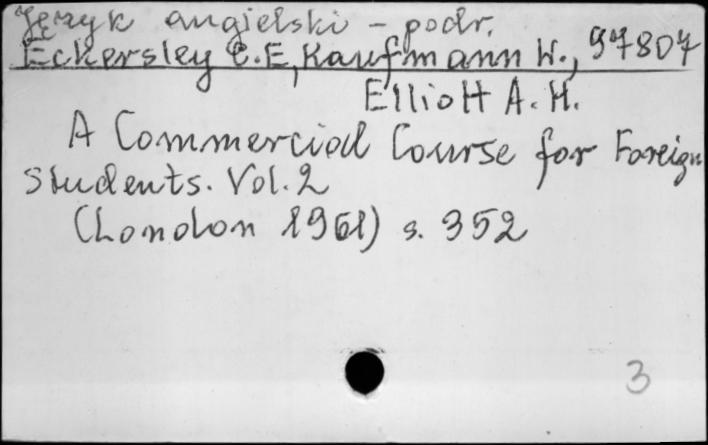 Język angielski - podr.
Eckersley C.E, Kaufmann W., 97807
Elliott A. H.
A Commercial Course for Foreign
Students. Vol. 2
(London 1961) s. 352
3